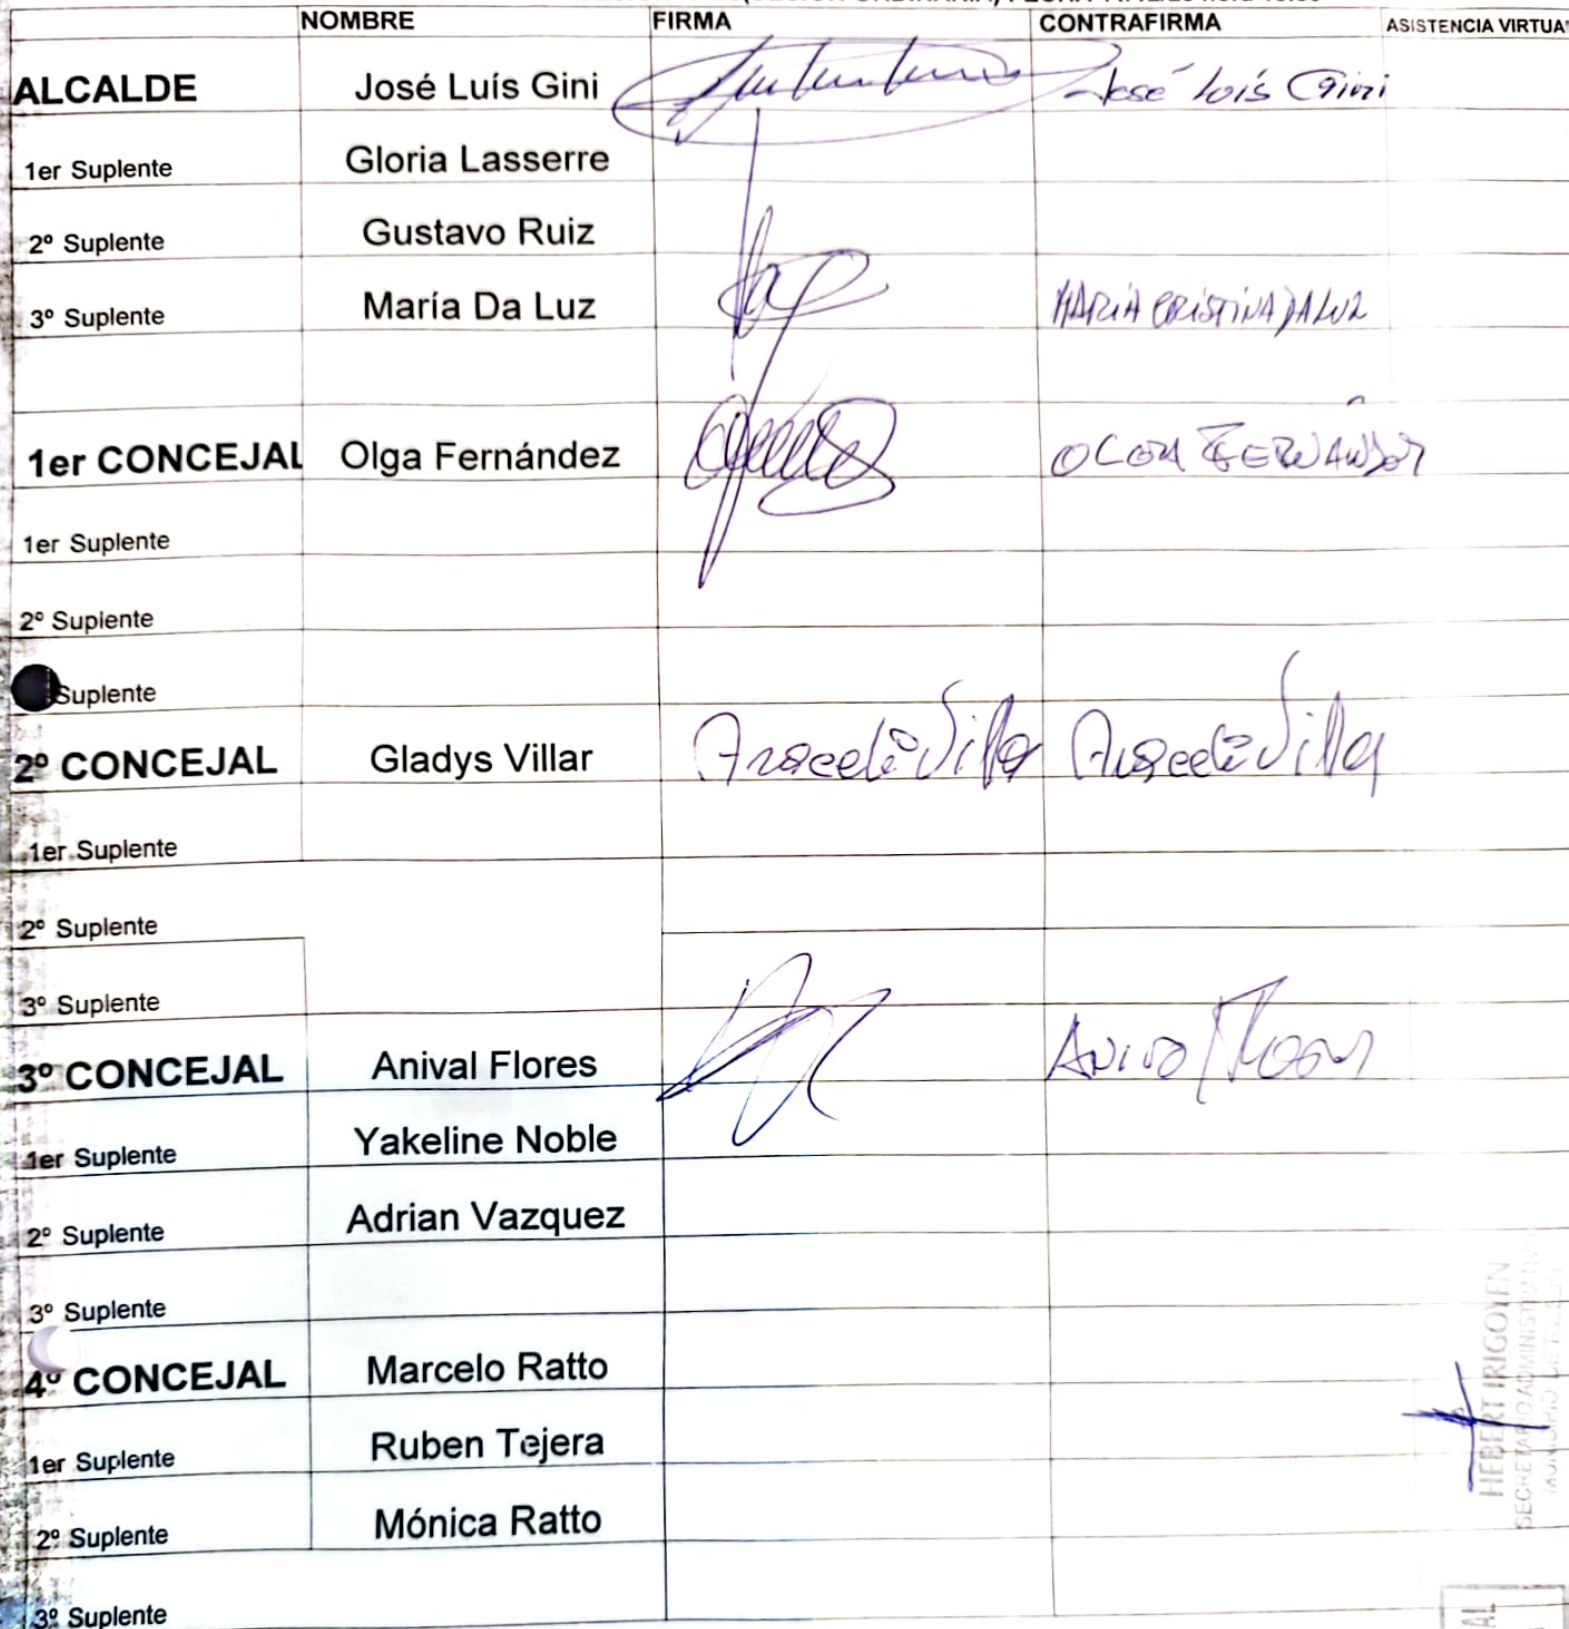 NOMBRE FIRMA CONTRAFIRMA ASISTENCIA VIRTUA
ALCALDE José Luís Gini José Luís Gini
1er Suplente Gloria Lasserre
2º Suplente Gustavo Ruiz
3º Suplente María Da Luz MARIA CRISTINA DA LUZ
1er CONCEJAL Olga Fernández OLGA FERNÁNDEZ
1er Suplente
2º Suplente
Suplente
2º CONCEJAL Gladys Villar Araceli Villa Araceli Villa
1er Suplente
2º Suplente
3º Suplente
3º CONCEJAL Anival Flores
1er Suplente Yakeline Noble
2º Suplente Adrian Vazquez
3º Suplente
4º CONCEJAL Marcelo Ratto
1er Suplente Ruben Tejera
2º Suplente Mónica Ratto
3º Suplente
HEBERT IRIGOYEN
SECRETARIO ADMINISTRATIVO
AL